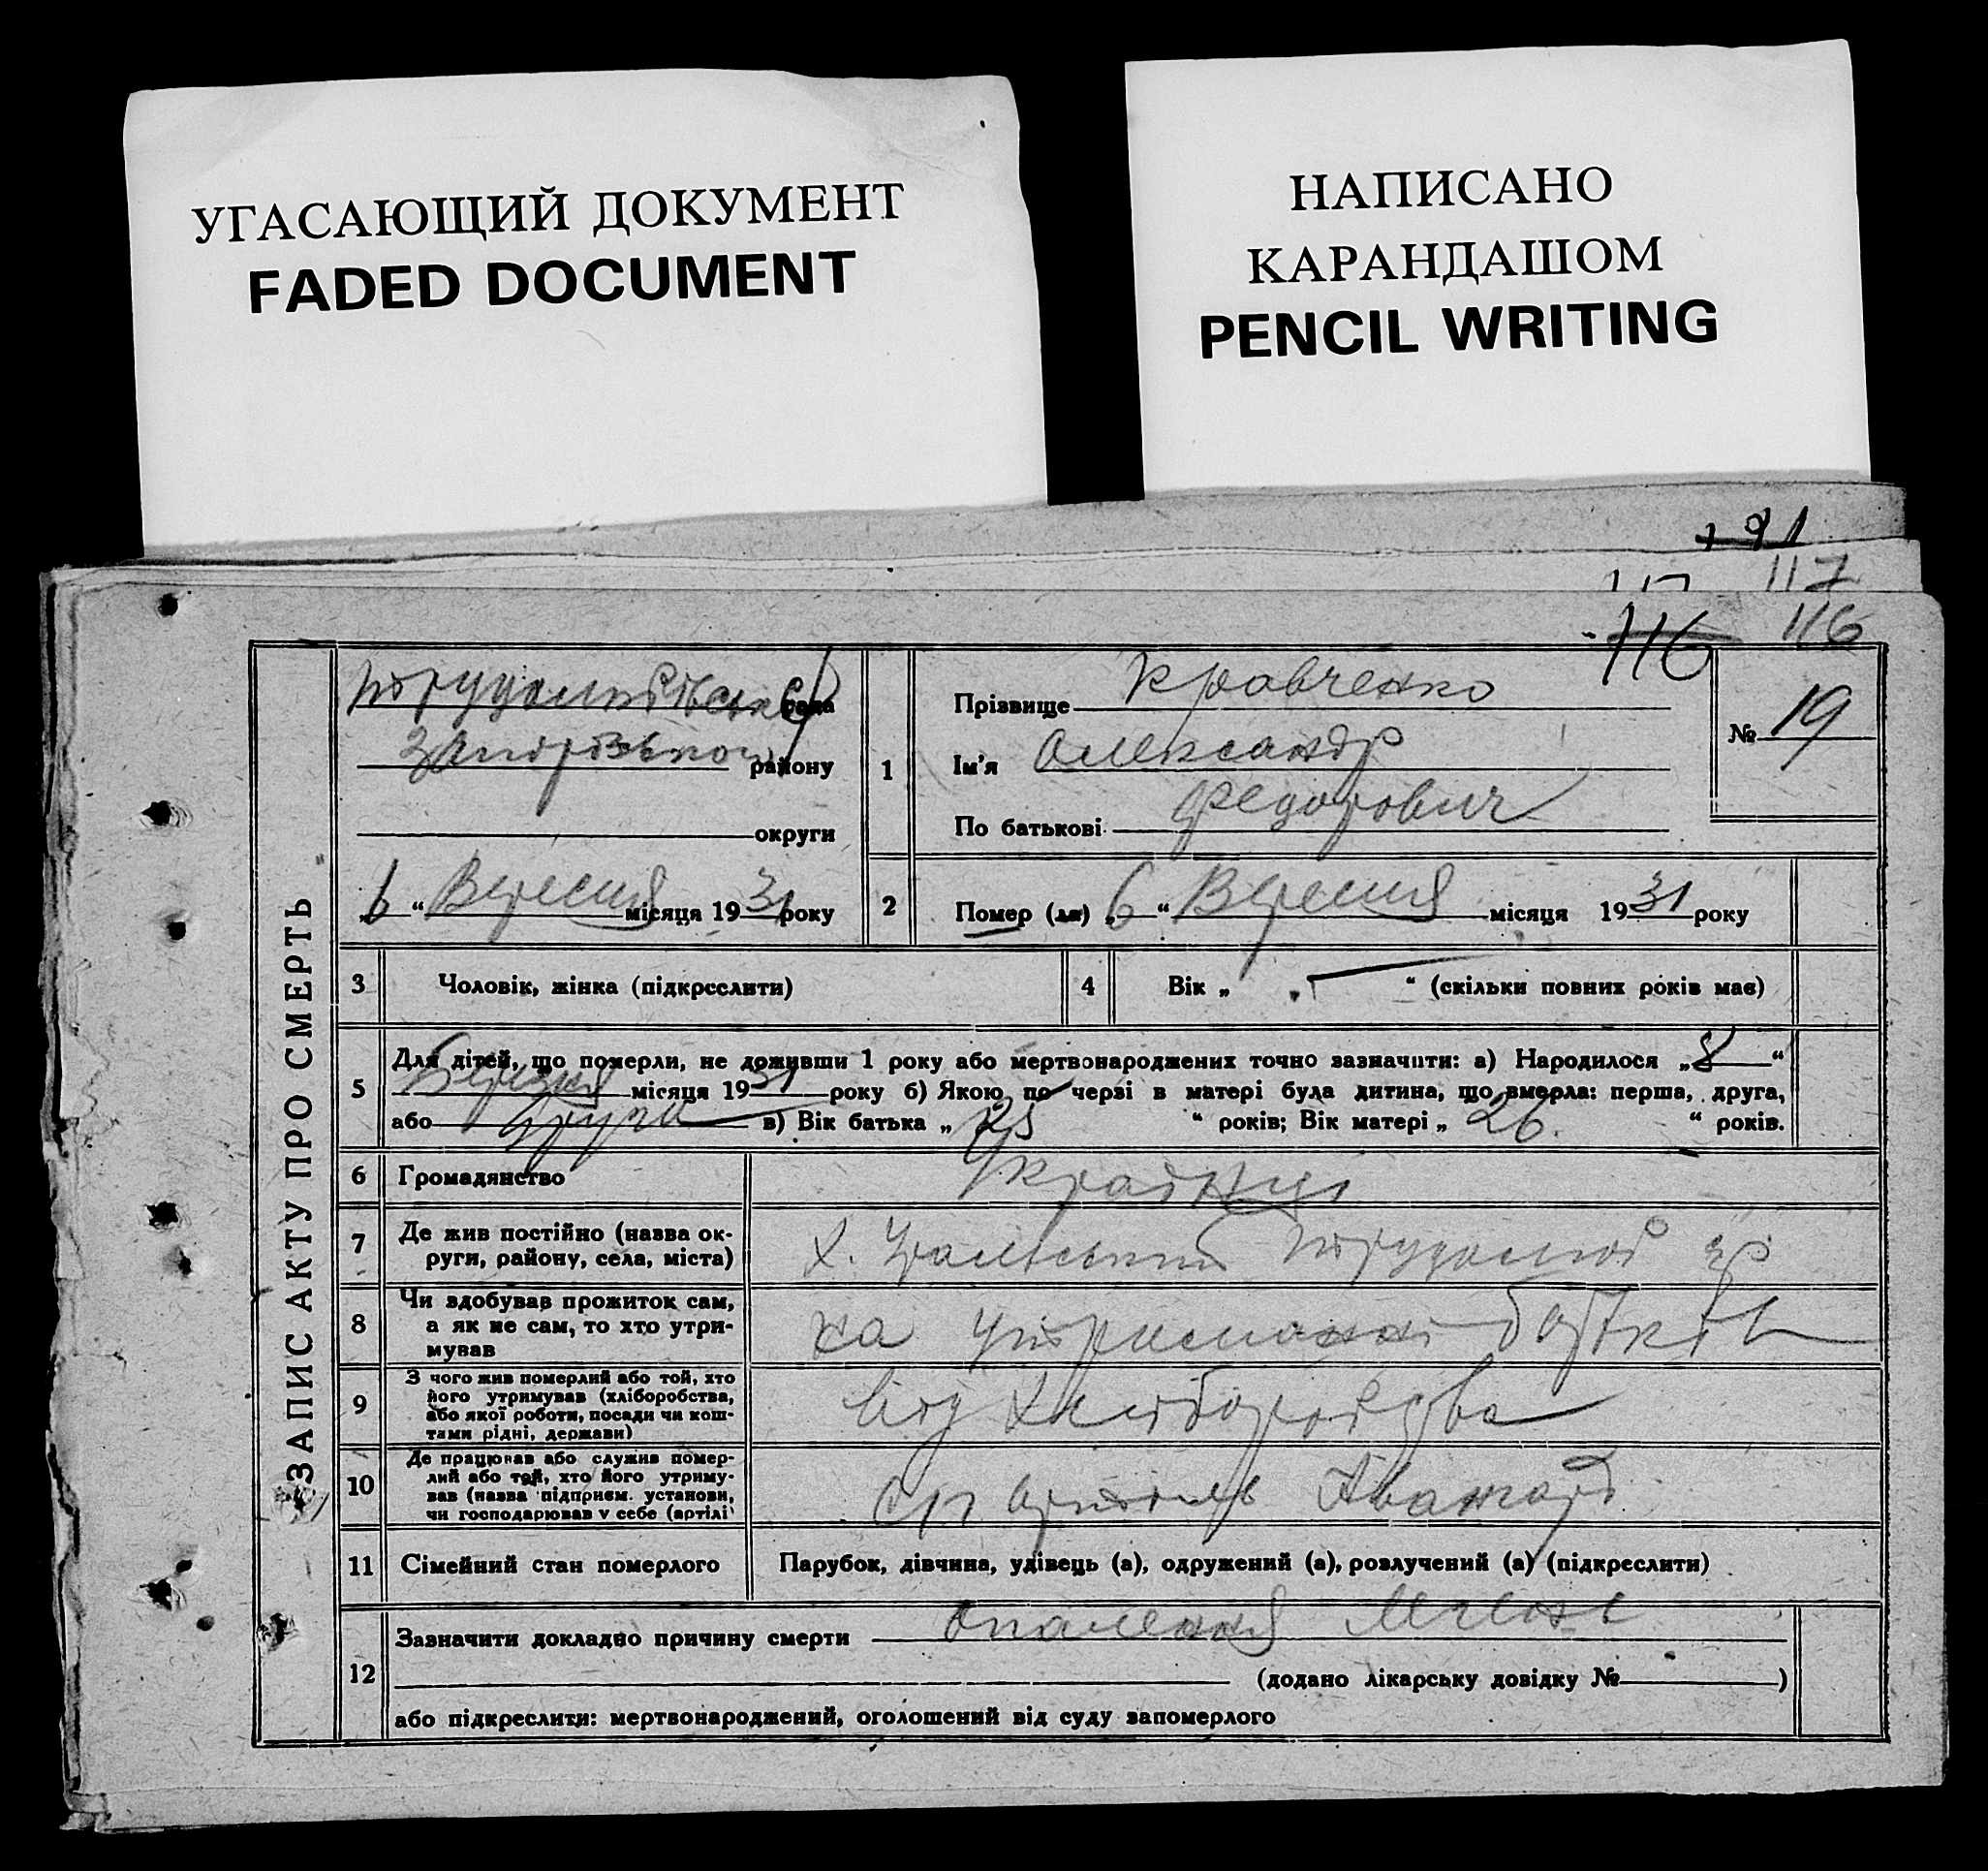 УГАСАЮЩИЙ ДОКУМЕНТ
FADED DOCUMENT
НАПИСАНО
КАРАНДАШОМ
PENCIL WRITING
191
117
116
116
ЗАПИС АКТУ ПРО СМЕРТЬ
рада
району
округи
„6“ Вересня місяця 1931 року
1
Прізвище Кравченко
Ім'я Олександр
По батькові Федорович
№ 19
2 Помер (ла) „6“ Вересня місяця 1931 року
3 Чоловік, жінка (підкреслити)
4 Вік „ “ (скільки повних років має)
5 Для дітей, що померли, не доживши 1 року або мертвонароджених точно зазначити: а) Народилося „8“
Березня місяця 1931 року б) Якою по черзі в матері була дитина, що вмерла: перша, друга,
або друга в) Вік батька „25“ років; Вік матері „26“ років.
6 Громадянство Українці
7 Де жив постійно (назва ок-
руги, району, села, міста)
х.
8 Чи здобував прожиток сам,
а як не сам, то хто утри-
мував
на утриманні батьків
9 З чого жив померлий або той, хто
його утримував (хліборобства,
або якої роботи, посади чи кош-
тами рідні, держави)
від Хліборобства
10 Де працював або служив помер-
лий або той, хто його утриму-
вав (назва підприєм. установи,
чи господарював у себе (артілі
Авангард
11 Сімейний стан померлого Парубок, дівчина, удівець (а), одружений (а), розлучений (а) (підкреслити)
12 Зазначити докладно причину смерти опалення
(додано лікарську довідку № )
або підкреслити: мертвонароджений, оголошений від суду запомерлого